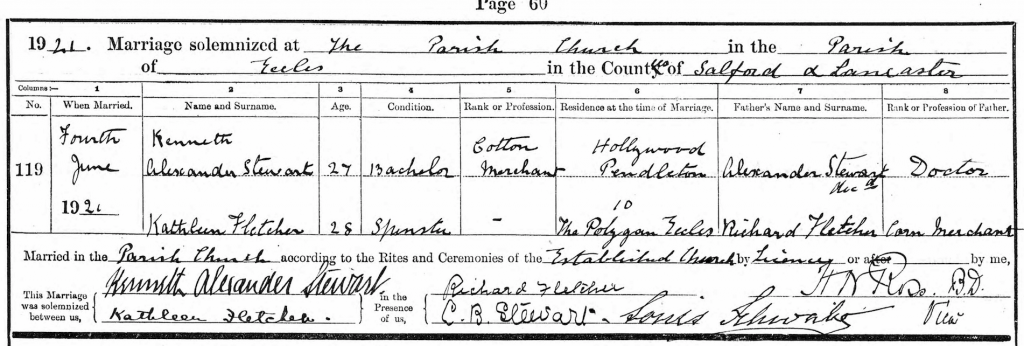 Page 60
1921. Marriage solemnized at The Parish Church in the Parish
of Eccles in the Counties of Salford & Lancaster
Columns :— 1 2 3 4 5 6 7 8
No. When Married. Name and Surname. Age. Condition. Rank or Profession. Residence at the time of Marriage. Father's Name and Surname. Rank or Profession of Father.
119 Fourth June 1921 Kenneth Alexander Stewart 27 Bachelor Cotton Merchant Hollywood Pendleton Alexander Stewart decd Doctor
Kathleen Fletcher 28 Spinster – 10 The Polygon Eccles Richard Fletcher Corn Merchant
Married in the Parish Church according to the Rites and Ceremonies of the Established Church by Licence or after by me,
This Marriage was solemnized between us, Kenneth Alexander Stewart Kathleen Fletcher. In the Presence of us, Richard Fletcher C. B. Stewart. Louis Schwabe H N Ross. B.D.